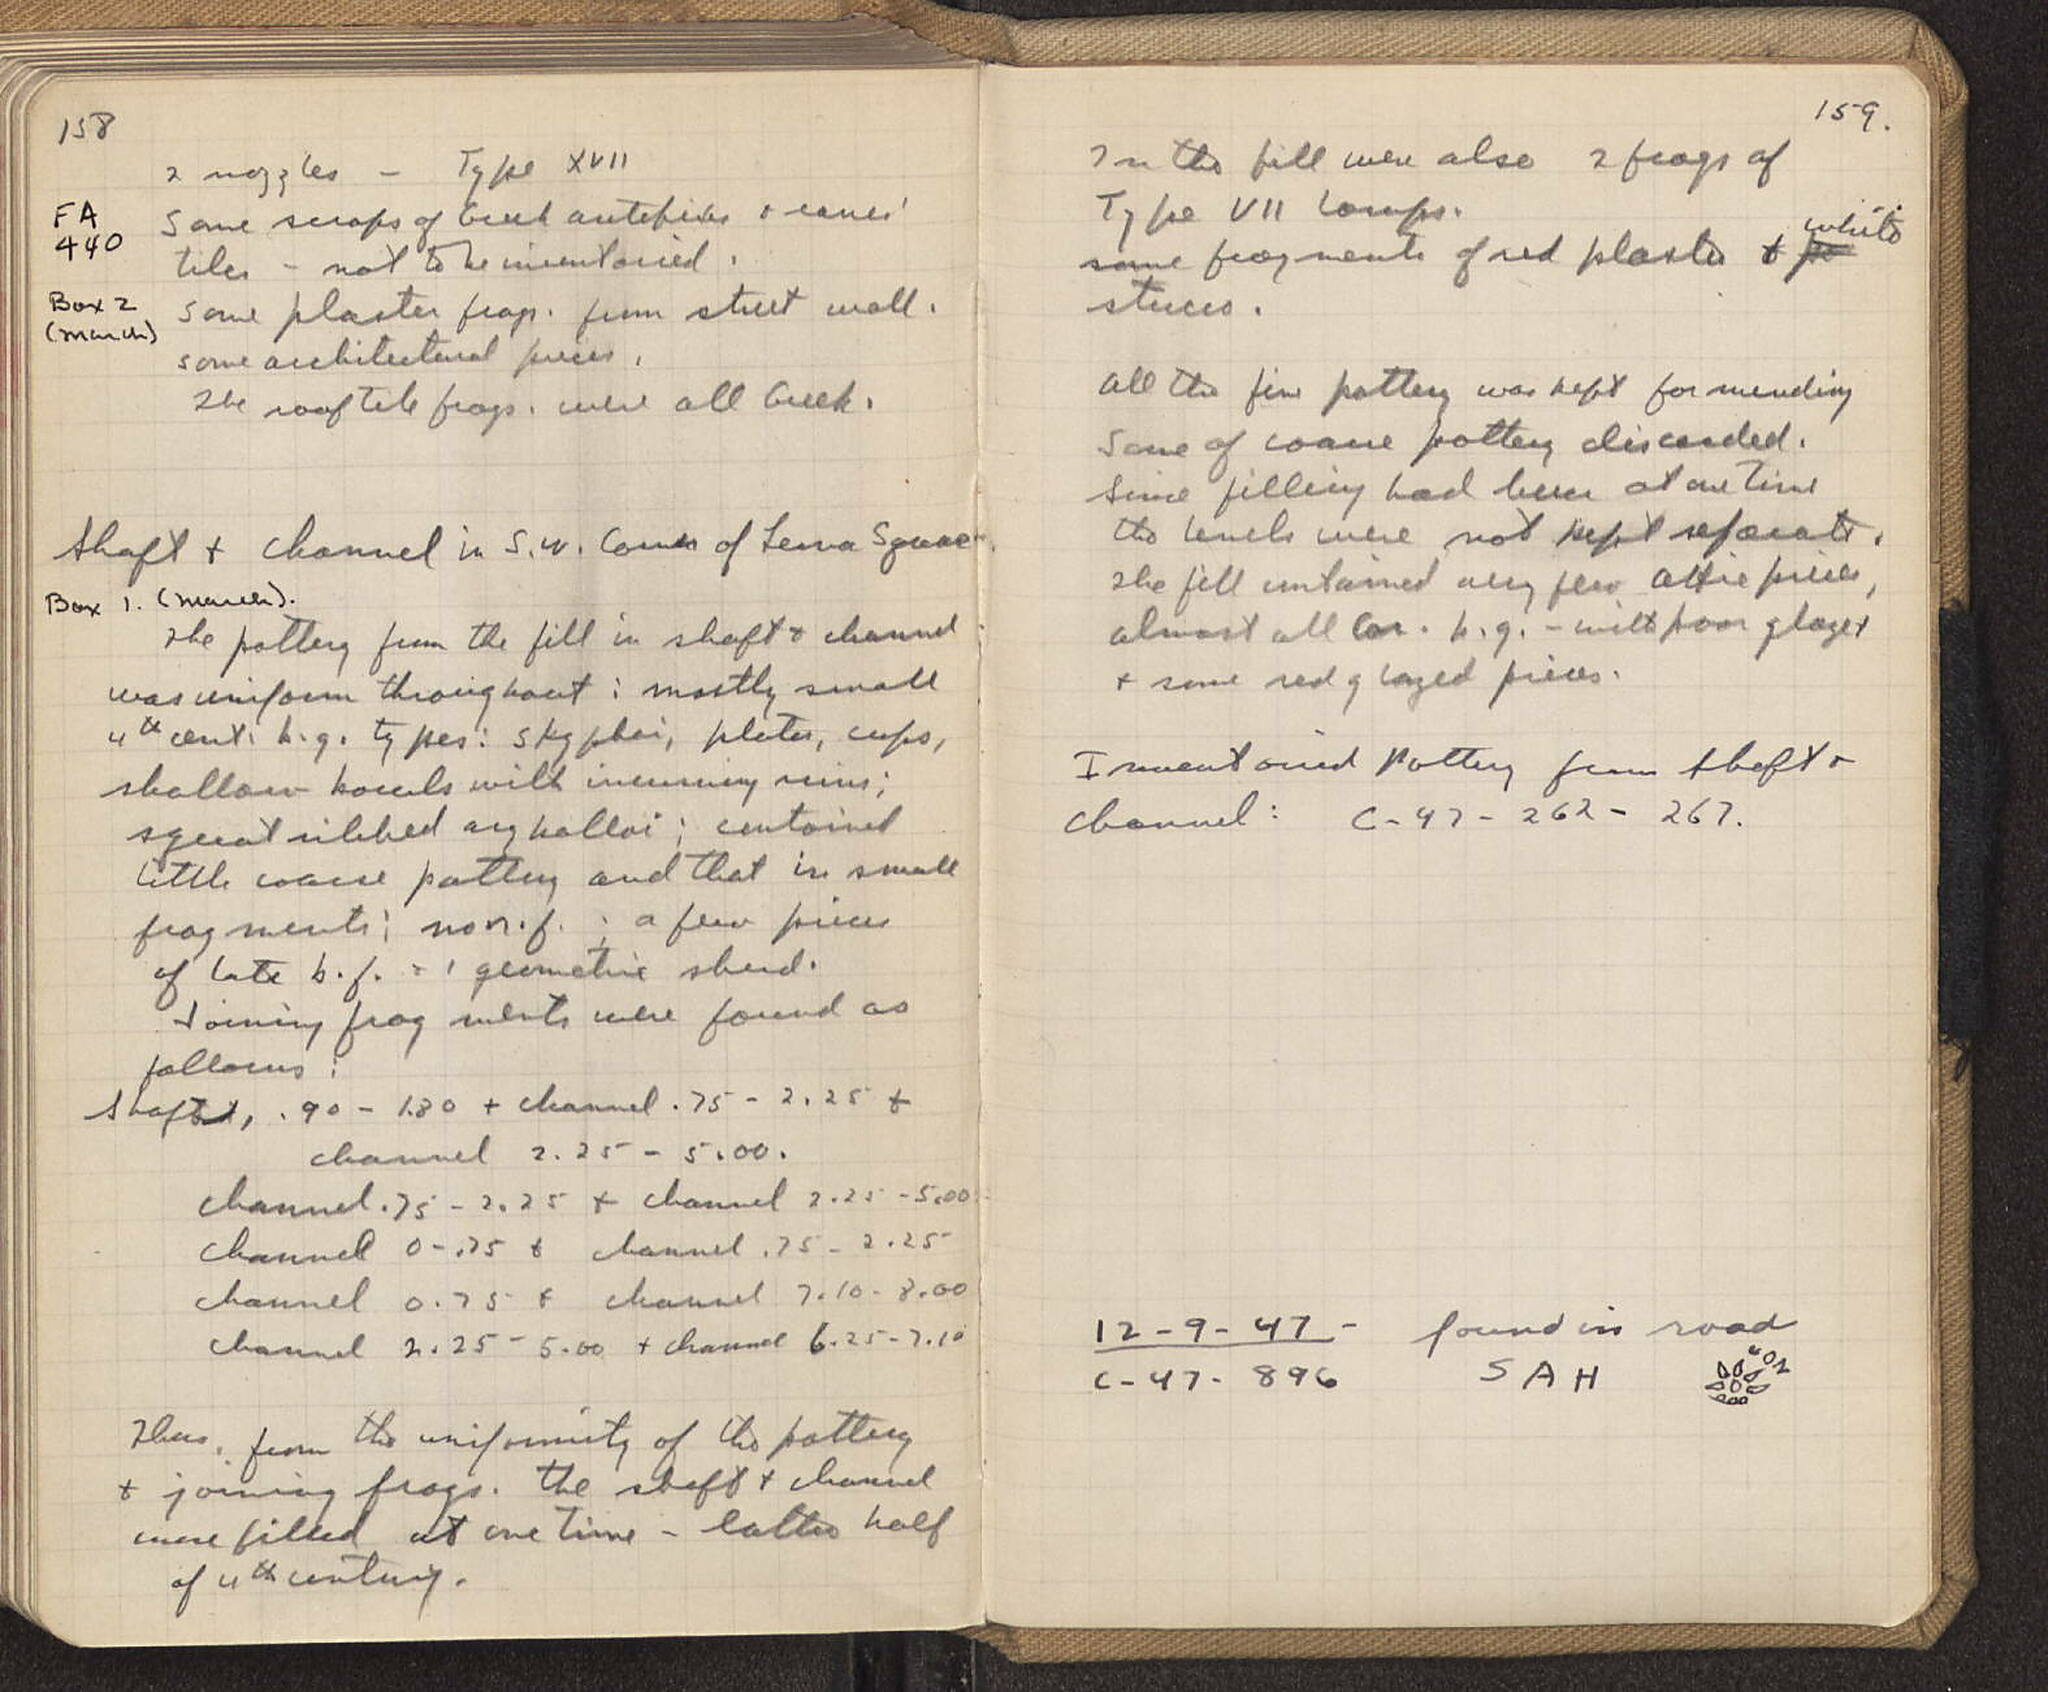 158
2 nozzles - Type XVII
FA
440
Some scraps of Greek antefixes + eaves'
tiles - not to be inventoried.
Box 2
(March)
Some plaster frags. from street wall.
some architectural pieces.
The rooftile frags. were all Greek.
Shaft + channel in S.W. Corner of Lerna Square.
Box 1. (March).
The pottery from the fill in shaft + channel
was uniform throughout: mostly small
4th cent. b.g. types: skyphoi, plates, cups,
shallow bowls with incurving rims;
squat ribbed aryballoi; contained
little coarse pottery and that in small
fragments; no r.f.; a few pieces
of late b.f. + 1 geometric sherd.
Joining fragments were found as
follows:
Shaft, .90 - 1.80 + channel .75 - 2.25 +
channel 2.25 - 5.00.
channel .75 - 2.25 + channel 2.25 - 5.00
channel 0 - .75 + channel .75 - 2.25
channel 0.75 + channel 7.10 - 8.00
channel 2.25 - 5.00 + channel 6.25 - 7.10
Thus, from the uniformity of the pottery
+ joining frags. the shaft + channel
were filled at one time - latter half
of 4th century.
159.
In the fill were also 2 frags of
Type VII lamps.
some fragments of red plaster + white
stucco.
All the fine pottery was kept for mending
Some of coarse pottery discarded.
Since filling had been at one time
the levels were not kept separate.
The fill contained very few Attic pieces,
almost all Cor. b.g. - with poor glaze +
+ some red glazed pieces.
Inventoried Pottery from Shaft +
Channel: C-47-262 - 267.
12-9-47 - found in road
C-47-896 SAH